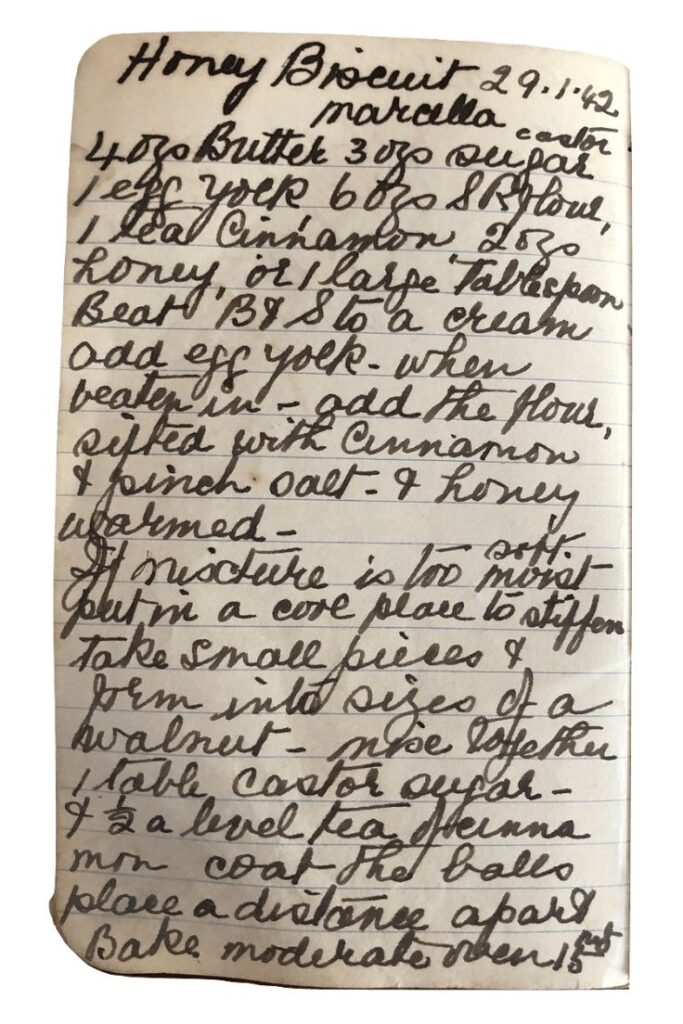 Honey Biscuit 29.1.42
Marcella
castor
4 ozs Butter 3 ozs sugar
1 egg yolk 6 ozs S R flour,
1 tea Cinnamon, 2 ozs
honey, or 1 large tablespoon
Beat B & S to a cream
add egg yolk - when
beaten in - add the flour,
sifted with Cinnamon
& pinch salt - & honey
warmed -
soft.
If mixture is too moist
put in a cool place to stiffen
take small pieces &
form into sizes of a
walnut - mix together
1 table castor sugar -
& ½ a level tea of cinna
mon coat the balls
place a distance apart
Bake moderate oven 15